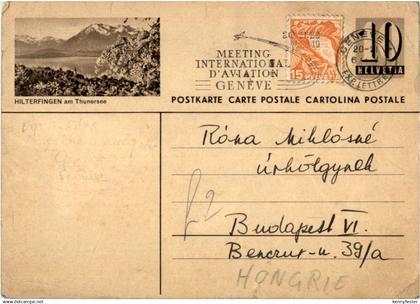 HILTERFINGEN am Thunersee
MEETING
INTERNATIONAL
D'AVIATION
GENÈVE
15
GENÈVE
10
HELVETIA
POSTKARTE CARTE POSTALE CARTOLINA POSTALE
Róna Miklósné
úrhölgynek
Budapest VI.
Benczur-u. 39/a
HONGRIE
www.delcampe.net
kennyfester